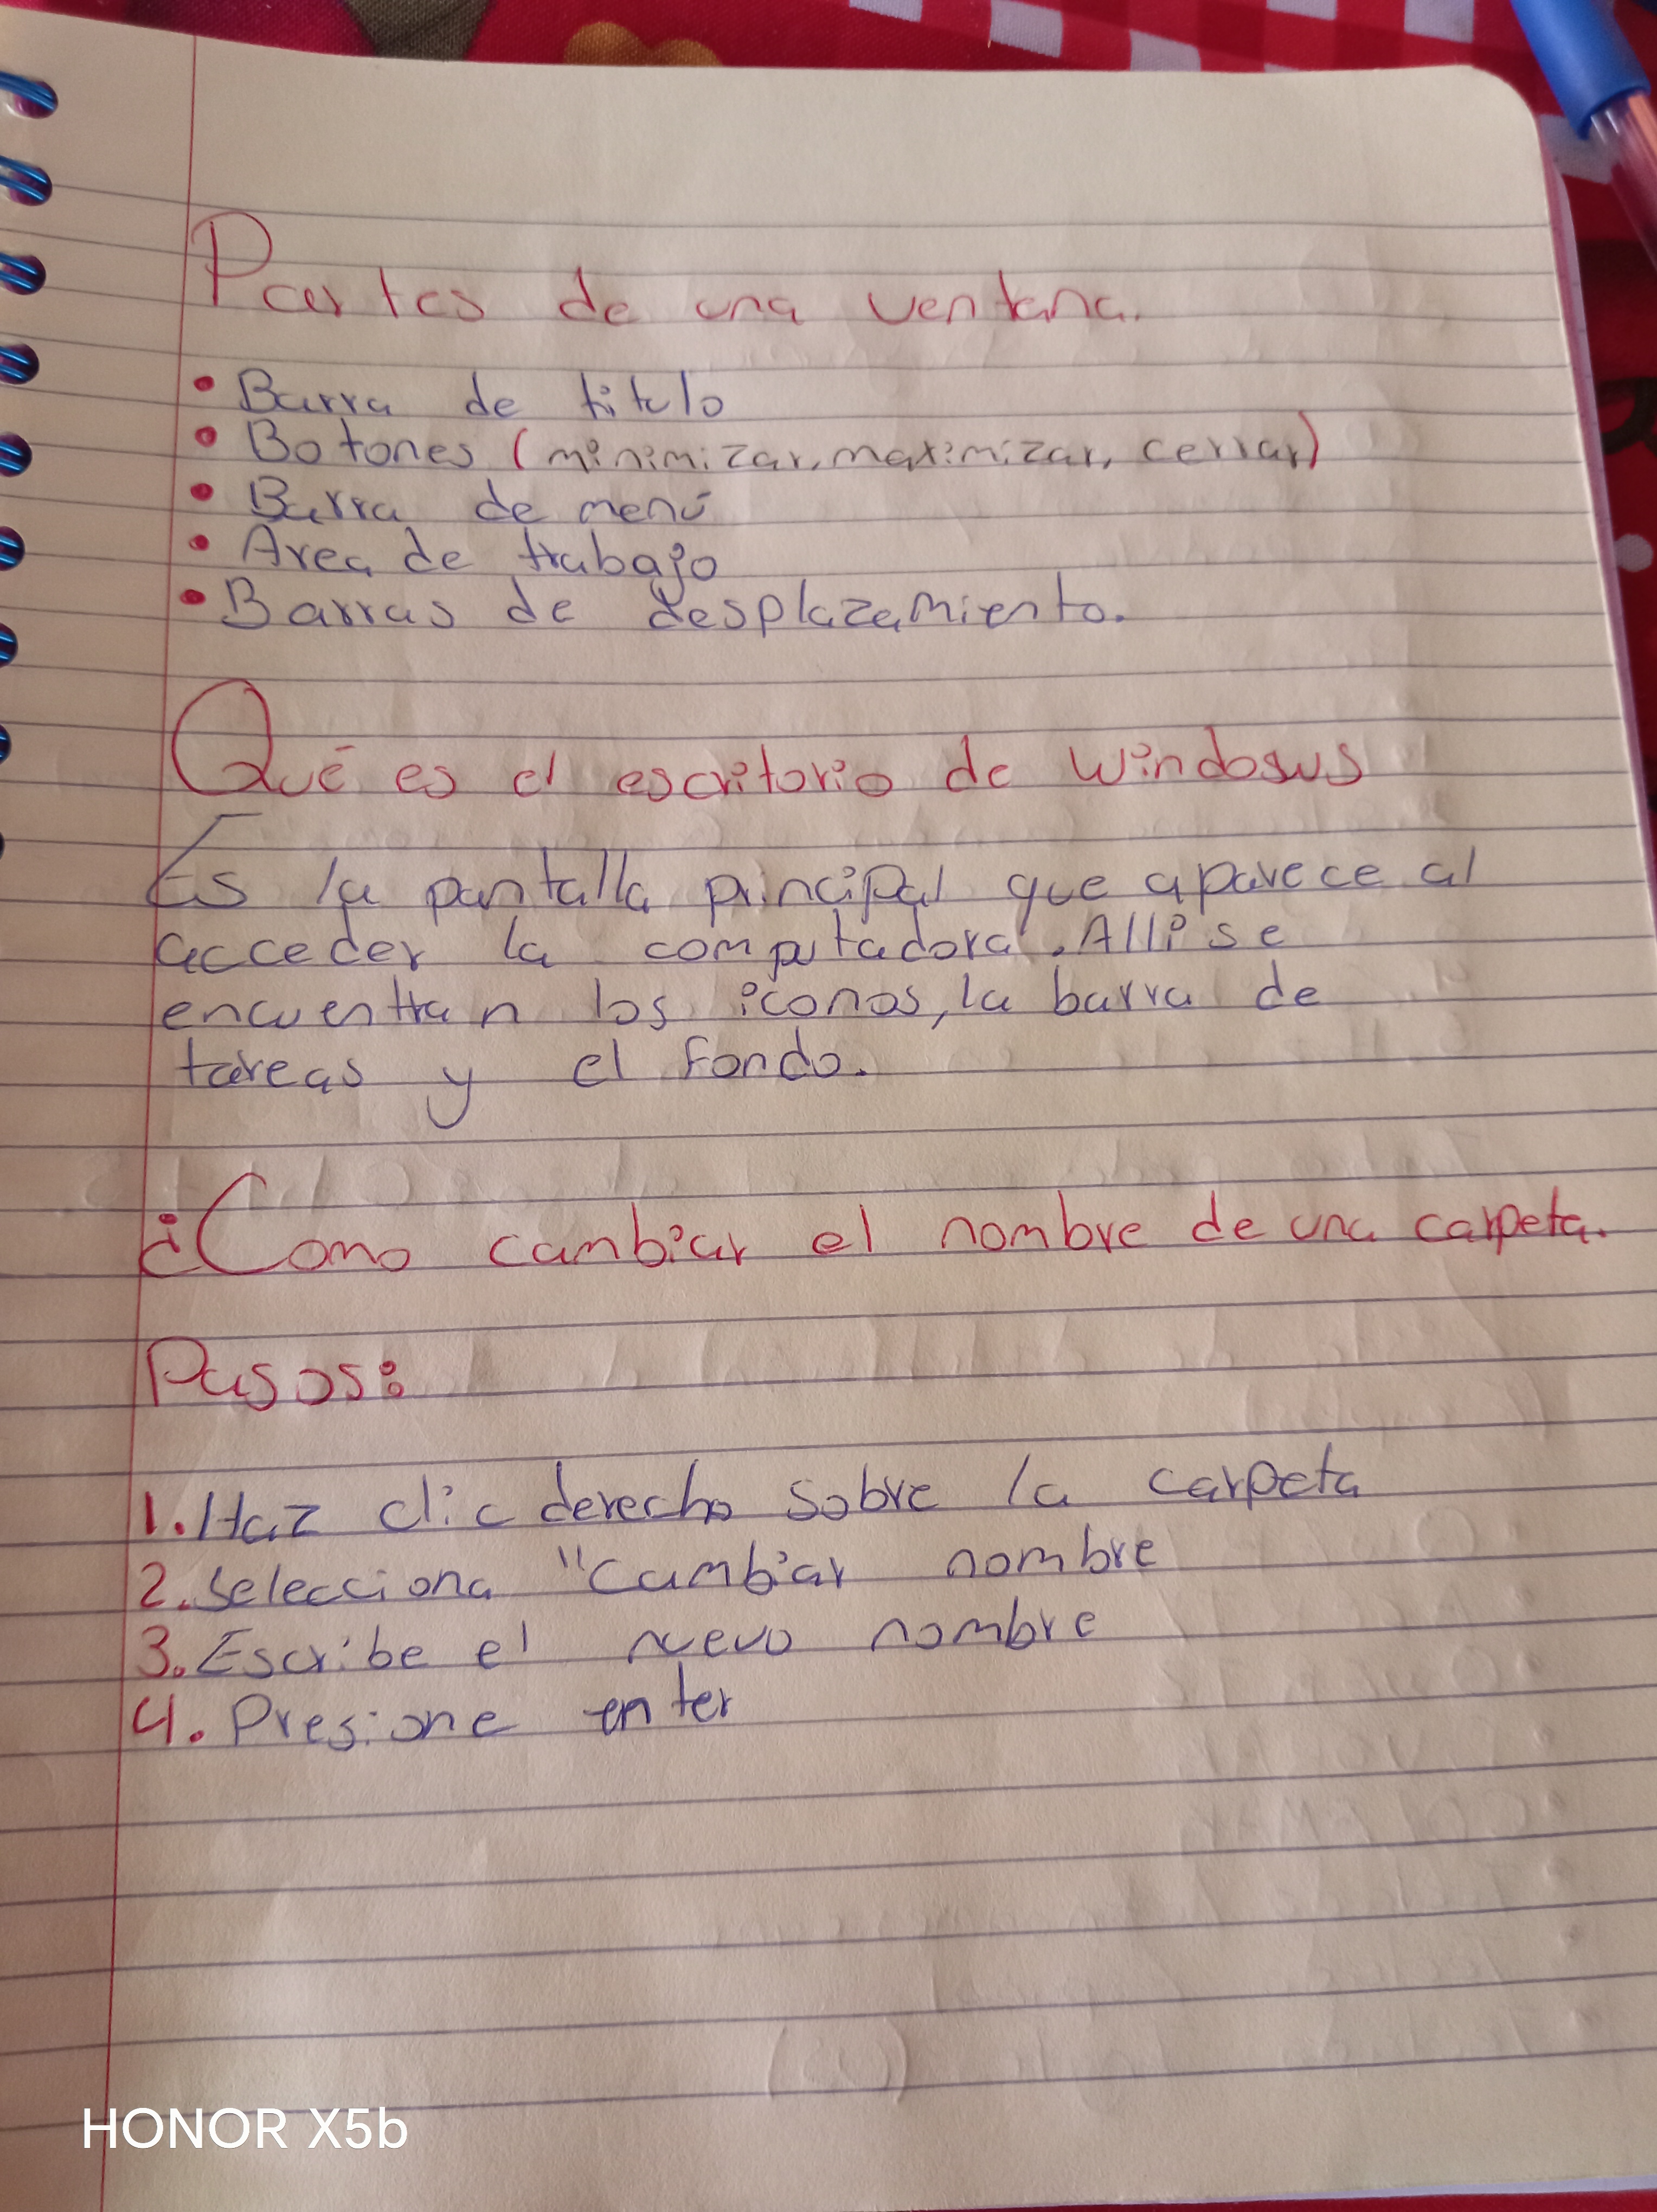 Partes de una ventana.
• Barra de titulo
• Botones (minimizar, maximizar, cerrar)
• Barra de menú
• Area de trabajo
• Barras de desplazamiento.
Qué es el escritorio de windosws
Es la pantalla principal que aparece al
acceder la computadora. Alli se
encuentran los iconos, la barra de
tareas y el fondo.
¿Como cambiar el nombre de una carpeta.
Pasos:
1. Haz clic derecho sobre la carpeta
2. Selecciona "Cambiar nombre
3. Escribe el nuevo nombre
4. Presione enter
HONOR X5b